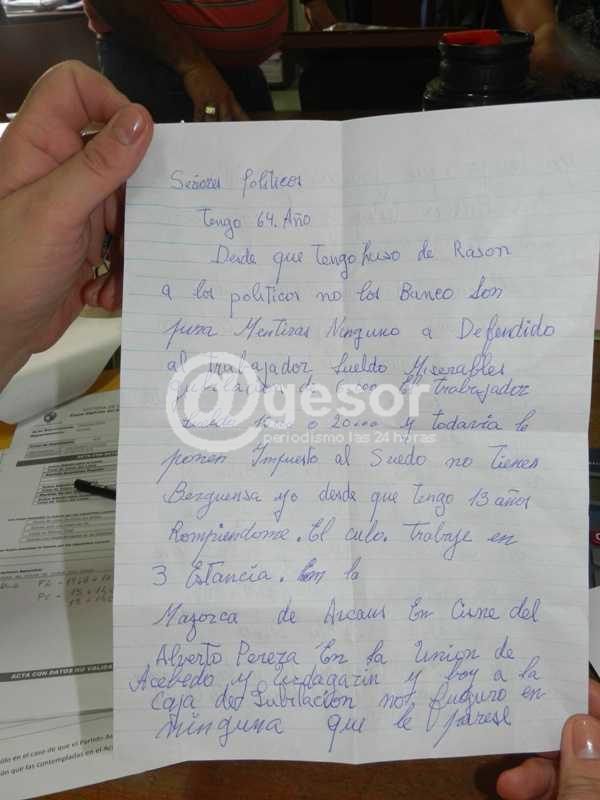 Señores Politicos
Tengo 64. Año
Desde que Tengo huso de Rason
a los politicos no los Banco Son
pura Mentiras Ninguno a Defendido
al trabajador Sueldo Miserables
de 6000 El trabajador
Sueldo 15000 o 20000 y todavia le
ponen Impuesto al Suedo no Tienes
Berguensa yo desde que Tengo 13 años
Rompiendome. El culo. Trabaje en
3 Estancia. En la
Mazorca de Arcaus En Cisne del
Alverto Pereza En la Union de
Acebedo y y boy a la
Caja de Jubilacion no figuro en
ninguna que le parese
@gesor
periodismo las 24 horas
ACTA CON DATOS NO VALIDA
ólo en el caso de que el Partido
ón que las contempladas en el